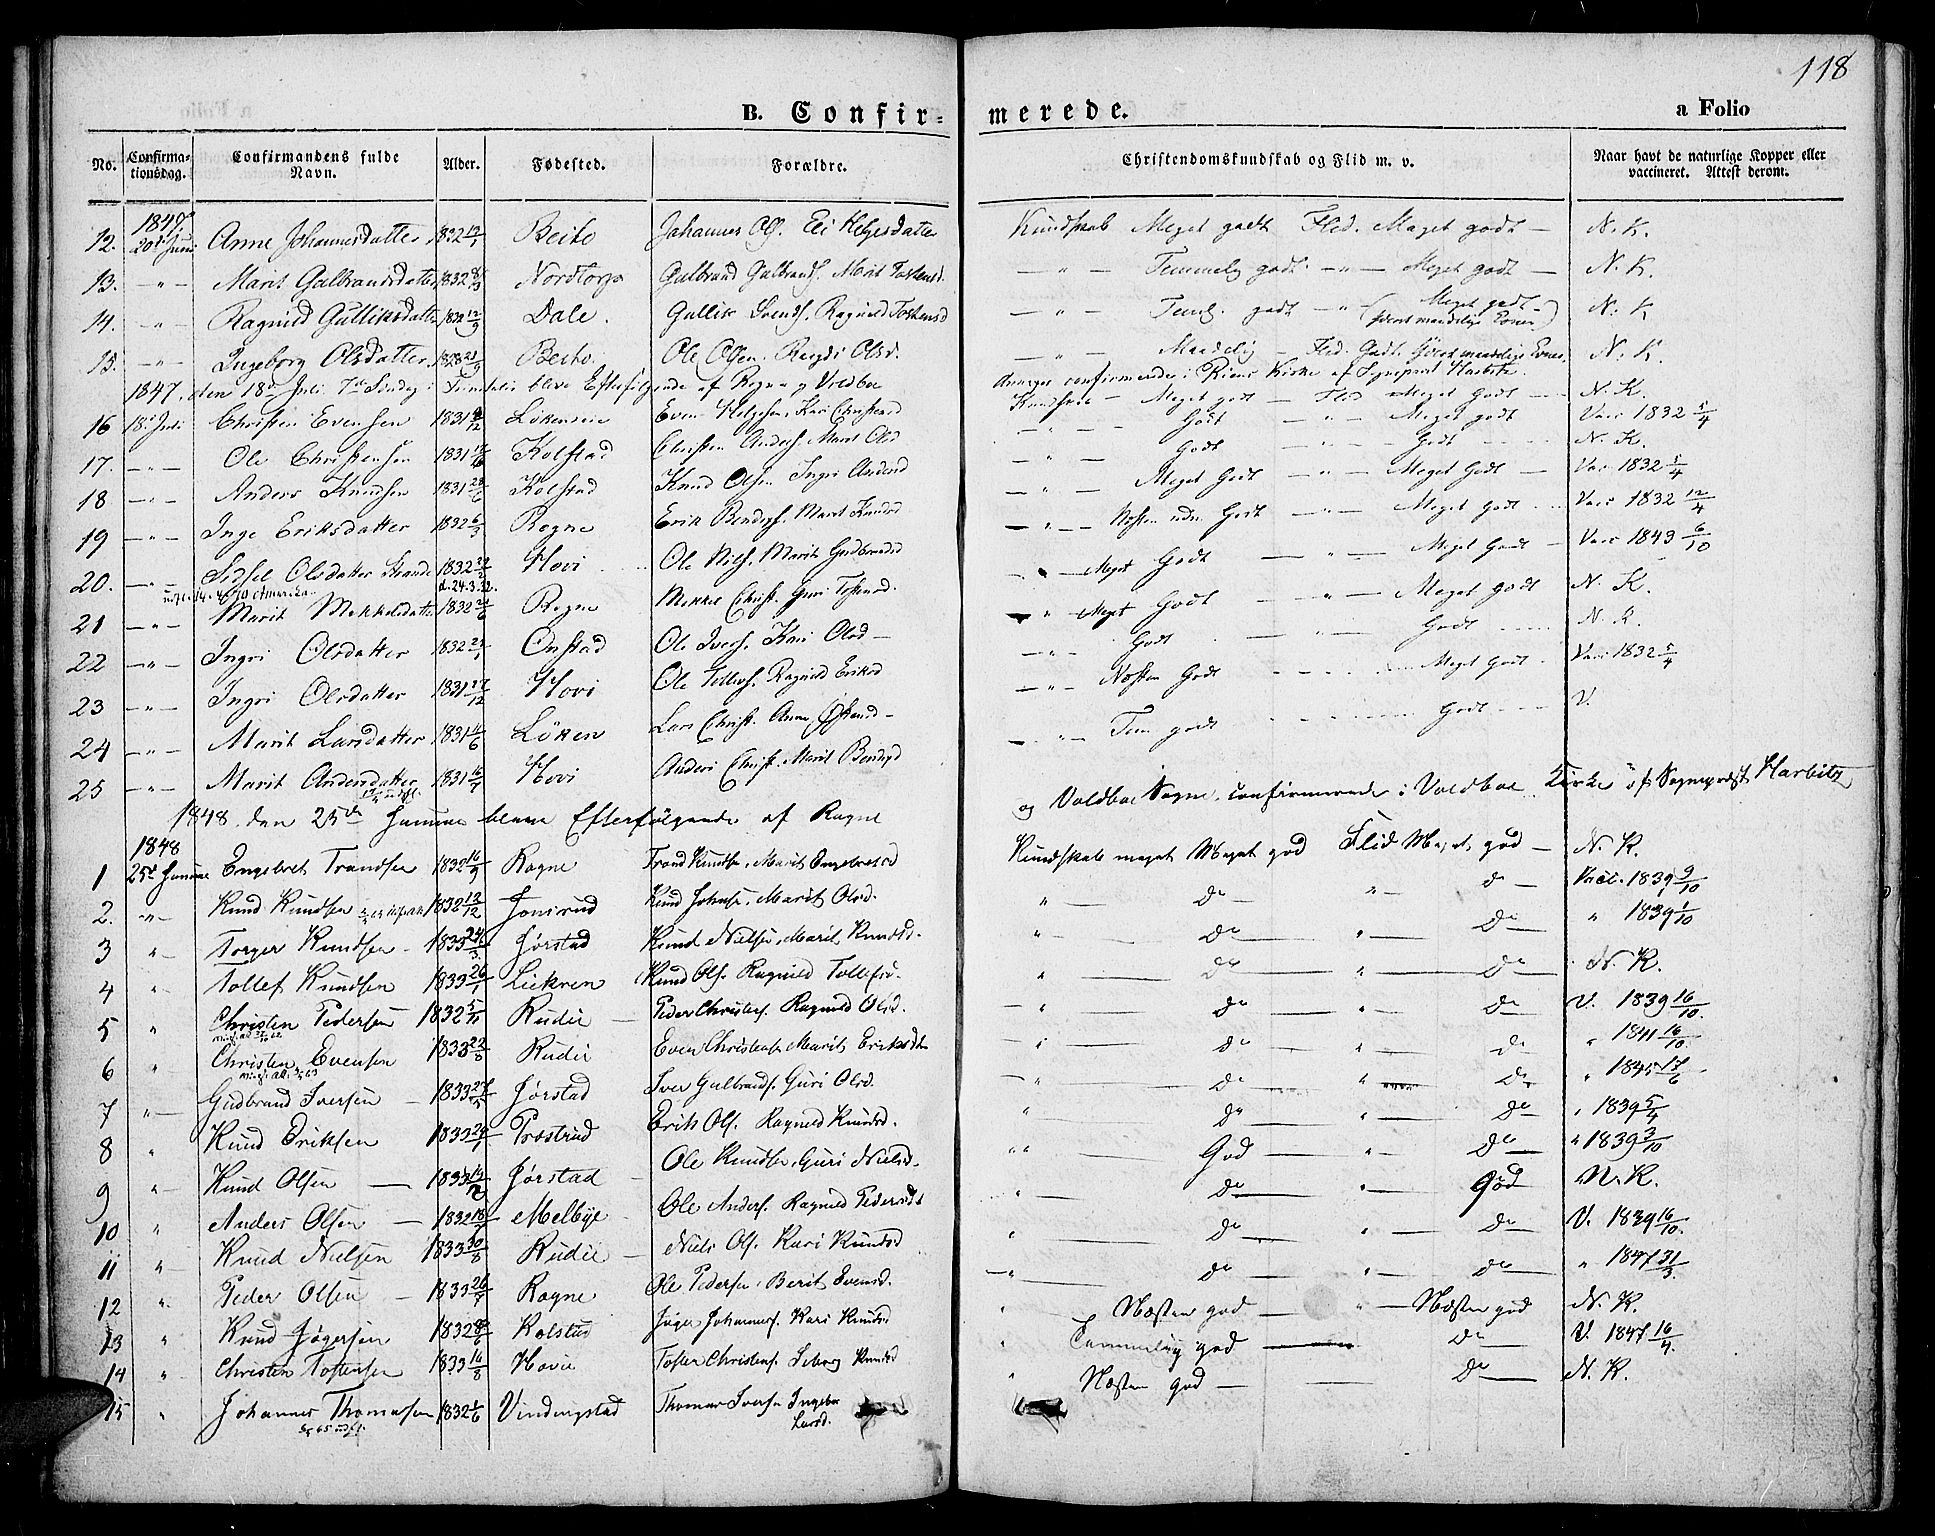 118
B. Confir-merede.
a Folio
No. Confirma-tionsdag. Confirmandens fulde Navn. Alder. Fødested. Forældre. Christendomskundskab og Flid m. v. Naar havt de naturlige Kopper eller vaccineret. Attest derom.
1847
12. 20de Juni Anne Johannesdatter 1832 Beito Johannes Ols. Eli Helgesdatter Kundskab Meget godt Flid. Meget godt — N. K.
13. — " — Marit Gulbrandsdatter 1832 Nordtorp Gulbrand Gulbrands. Marit Tostensd. — " — Temmelig godt. — " — Meget godt — N. K.
14. — " — Ragnild Gulliksdatter Dale. Gullik Svends. Ragnild Tostensd — " — Teml. godt — " (Meget godt N. K
15. — " — Ingeborg Olsdatter Beito. Ole Olsen. Olsd. — " — Maadelig — Flid. Godt. N. K.
1847. den 18de Juli 7de Søndag i Trinitatis bleve Efterfølgende af Rogne og Voldbo
confirmerede i Kirke af Sogneprest Harbitz.
16 18de Juli Christen Evensen 1831 Løkensein Even Helgesen, Kari Christensd Kundskab — Meget godt — Flid Meget Godt — N. K.
17. — " — Ole Christensen 1831 Kolstad Christen Anders. Marit Olsd — " — Godt " — Meget godt Vac: 1832 5/4
18 — " — Anders Knudsen 1831 28/6 Kolstad Knud Olsen Ingri Andersd — " — Godt — " — Godt N. K.
19 — " — Inge Eriksdatter 1832 6/3 Rogne Erik Benders. Marit Knudsd — " — Meget Godt — " — Meget Godt — Vac 1832 5/4
20. — " — Sidsel Olsdatter Strande 1832 Hovi Ole Nils. Marit Gudbrandsd — " — Næsten Godt — " — Meget Godt Vac: 1832 12/4
d. 24.3.32.
21 — " — Marit Mekkelsdatter 1832 Rogne Mekkel Christ. Guri Tostensd. — " — Meget Godt — " — Meget Godt — Vac 1843 6/10
22 — " — Ingri Olsdatter 1832 Onstad Ole Ivers. Kari Olsd — — " — Meget Godt — " — Meget godt N. K.
23 — " — Ingri Olsdatter 1831 27/12 Hovi Ole Tollefs. Ragnild Eriksd — " — Godt — " — Godt N. K.
24 — " — Marit Larsdatter 1831 Løken Lars Christ. Anne Østensd — — " — Næsten Godt Meget Godt. Vac: 1832 5/4
25 — " — Marit Andersdatter 1831 Hovi Anders Christ. Marit Bendixd — " — Tem godt Godt V.
1848. den 25de Junni bleve Efterfølgende af Rogne
og Voldboe Sogne, confirmerede i Voldboe Kirke af Sogneprest Harbitz
1848
1 25de Junni Engebret Trondsen 1832 Rogne Trond Knudsen, Marit Engebretsd Kundskab meget Meget god Flid Meget god — N. K.
2. " — Knud Knudsen 1832 13/12 Jomrud Knud Johns. Marit Olsd. " do — " do — Vacc. 1839 9/10
3 " — Torger Knudsen — 1833 Jørstad Knud Nielsen, Marit Knudsd. " do — " do — " 1839 1/10
4 " Tollef Knudsen 1833 Liekren Knud Ols. Ragnild Tollefsd. " do — " do — N. K.
5 " Christen Pedersen 1832 5/11 Rudie Peder Christens. Ragnild Olsd. — " do — " do — V. 1839 16/10.
6 " Christen Evensen 1833 23/8 Rudie Even Christens. Marit Eriksdtr — " do — " do " 1841 16/10.
7 " — Gudbrand Iversen — 1833 27/5 Jørstad Iver Gulbrands. Guri Olsd. — " do — " do " 1845 17/6
8 " Knud Eriksen 1833 Præstrud Erik Ols. Ragnild Knudsd. " do — " do " 1839 5/4
9 " — Knud Olsen — 1833 Jørstad Ole Knudsen, Guri Nielsd. " " God — " do " 1839 3/10
10 " Anders Olsen — 1832 Melbye Ole Anders. Ragnild Pedersdt " do — " God N. K.
11 " Knud Nielsen 1833 30/8 Rudie — Niels Ols. Kari Knudsd " do — " do V. 1839 16/10.
12 " Peder Olsen — 1833 Rogne Ole Pedersen, Berit Ivensd. — " do — " do " 1847 31/3.
13 " Knud Jøgersen 1832 Kolstad Jøger Johannes. Kari Knudsd " Næsten god — " — Næsten god N. K.
14 " Christen Tostensen 1833 16/8 Hovie Toster Christens. Siborg Knudsd " Temmelig god — do V. 1847 16/4
15 " Johannes Thomasen 1832 1/6 Vindingstad Thomas Iversen Ingebor Larsd. " Næsten god — do N. K.